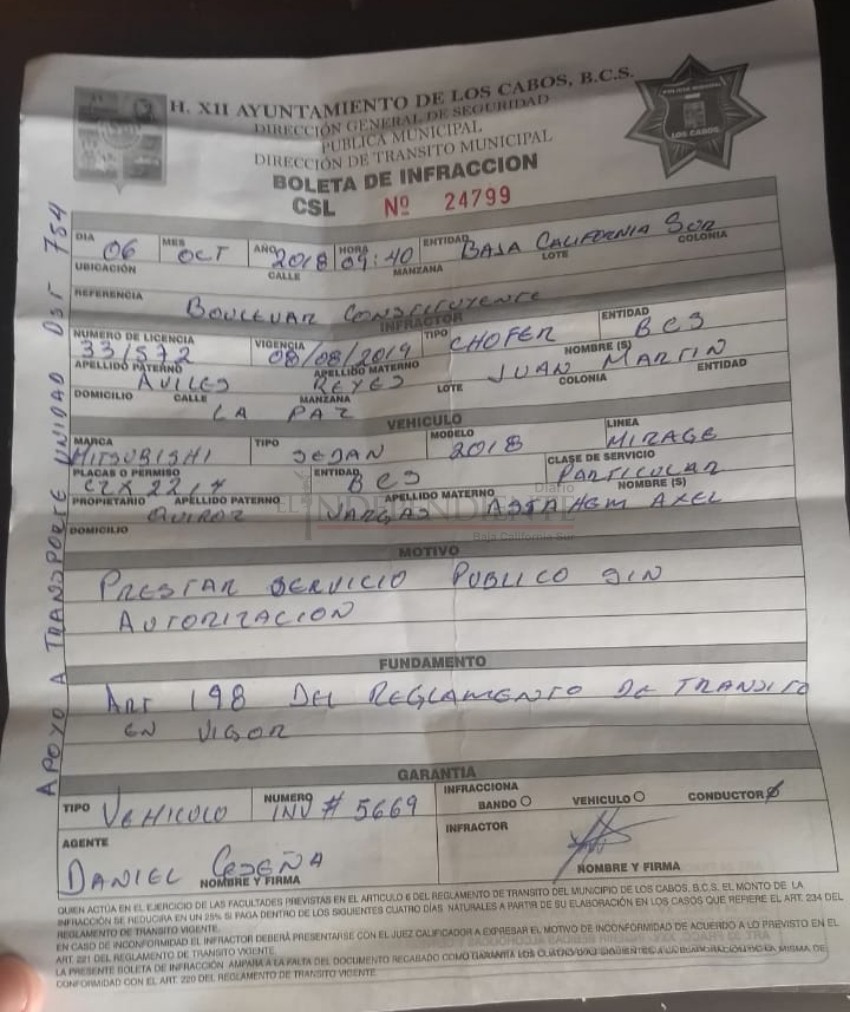 H. XII AYUNTAMIENTO DE LOS CABOS, B.C.S.
DIRECCIÓN GENERAL DE SEGURIDAD
PUBLICA MUNICIPAL
DIRECCIÓN DE TRANSITO MUNICIPAL
BOLETA DE INFRACCION
CSL Nº 24799
LOS CABOS
APOYO A TRANSPORTE UNIDAD DST 754
DIA 06 MES OCT AÑO 2018 HORA 09:40 ENTIDAD BAJA CALIFORNIA SUR
UBICACIÓN CALLE MANZANA LOTE COLONIA
REFERENCIA BOULEVAR CONSTITUYENTE
INFRACTOR
NUMERO DE LICENCIA 331572 VIGENCIA 08/08/2019 TIPO CHOFER ENTIDAD BCS
APELLIDO PATERNO AVILES APELLIDO MATERNO REYES NOMBRE (S) JUAN MARTIN
DOMICILIO CALLE MANZANA LOTE COLONIA ENTIDAD
LA PAZ
VEHICULO
MARCA MITSUBISHI TIPO SEDAN MODELO 2018 LINEA MIRAGE
PLACAS O PERMISO ENTIDAD BCS CLASE DE SERVICIO PARTICULAR
PROPIETARIO APELLIDO PATERNO QUIROZ APELLIDO MATERNO VARGAS NOMBRE (S) AXEL
DOMICILIO
Diario
EL INDEPENDIENTE
Baja California Sur
MOTIVO
PRESTAR SERVICIO PUBLICO SIN
AUTORIZACION
FUNDAMENTO
ART 198 DEL REGLAMENTO DE TRANSITO
EN VIGOR
GARANTIA
TIPO VEHICULO NUMERO INV # 5669 INFRACCIONA
BANDO VEHICULO CONDUCTOR
AGENTE INFRACTOR
DANIEL CEDEÑA
NOMBRE Y FIRMA NOMBRE Y FIRMA
QUIEN ACTÚA EN EL EJERCICIO DE LAS FACULTADES PREVISTAS EN EL ARTICULO 6 DEL REGLAMENTO DE TRANSITO DEL MUNICIPIO DE LOS CABOS, B.C.S. EL MONTO DE LA
INFRACCIÓN SE REDUCIRA EN UN 25% SI PAGA DENTRO DE LOS SIGUIENTES CUATRO DÍAS NATURALES A PARTIR DE SU ELABORACIÓN EN LOS CASOS QUE REFIERE EL ART. 234 DEL
REGLAMENTO DE TRANSITO VIGENTE.
EN CASO DE INCONFORMIDAD EL INFRACTOR DEBERÁ PRESENTARSE CON EL JUEZ CALIFICADOR A EXPRESAR EL MOTIVO DE INCONFORMIDAD DE ACUERDO A LO PREVISTO EN EL
ART. 221 DEL REGLAMENTO DE TRANSITO VIGENTE
LA PRESENTE BOLETA DE INFRACCIÓN AMPARA A LA FALTA DEL DOCUMENTO RECABADO COMO GARANTÍA LOS CUATRO DÍAS SIGUIENTES A LA ELABORACIÓN DE LA MISMA DE
CONFORMIDAD CON EL ART. 220 DEL REGLAMENTO DE TRANSITO VIGENTE